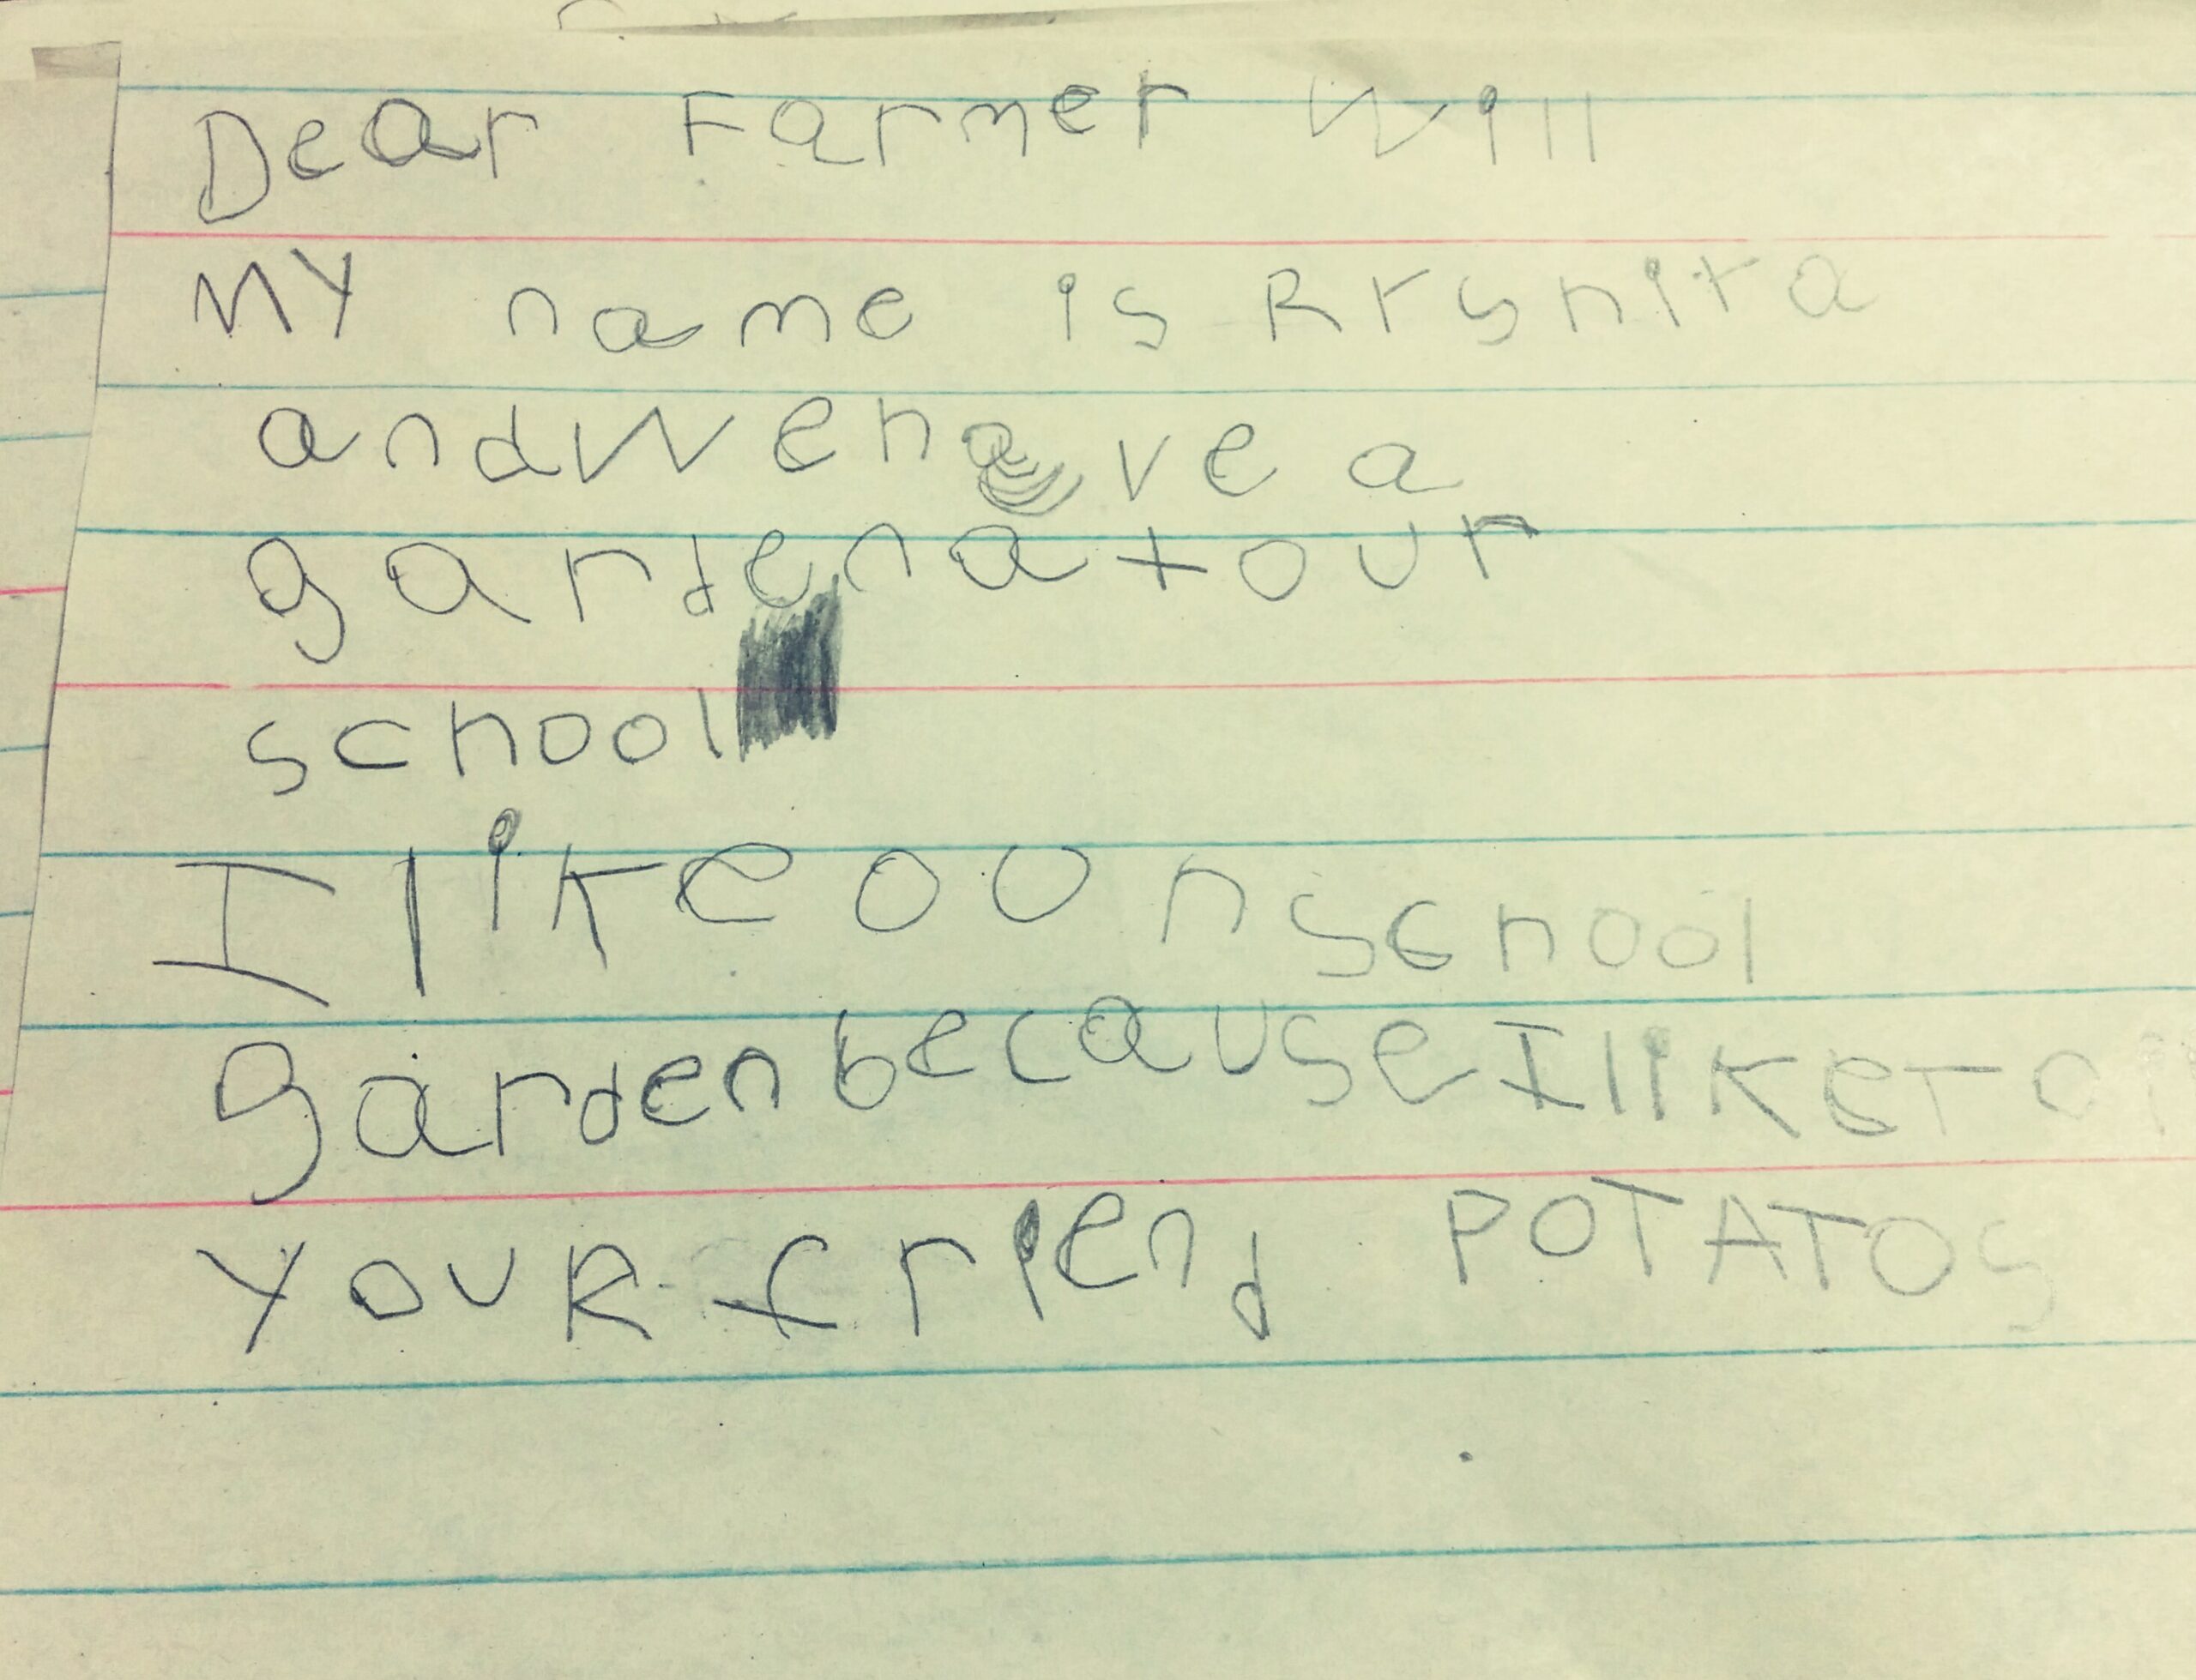 Dear Farmer Will
MY name is Krsnita
andWehave a
gardenatour
school
I likeour school
garden because I like to
YouR friend POTATOS